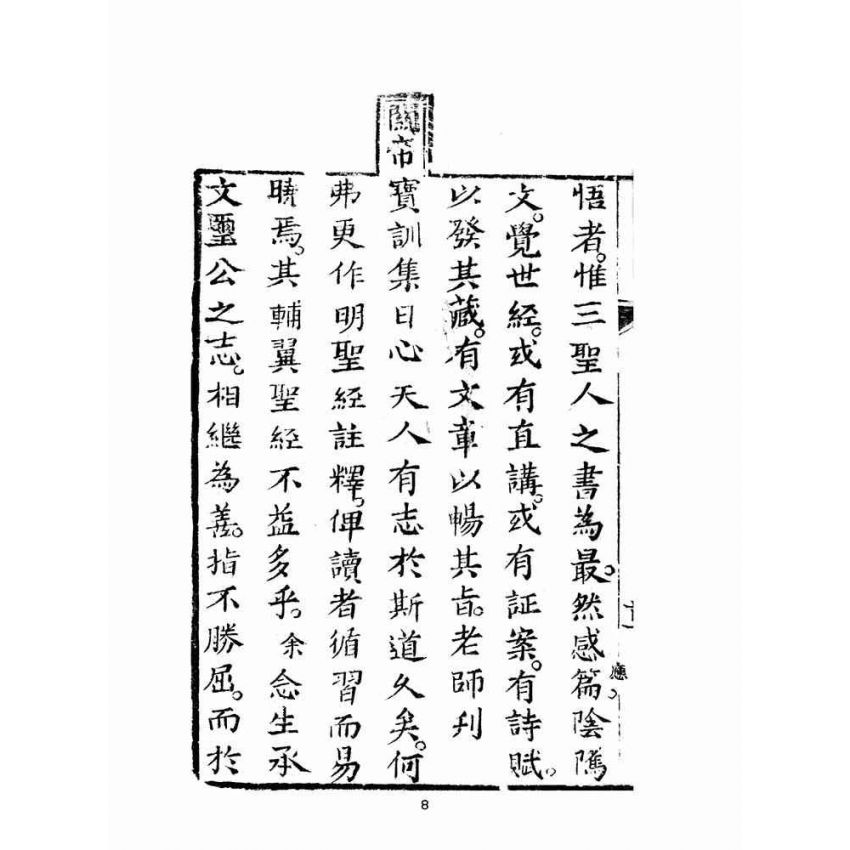 悟者。惟三聖人之書為最。然感應。篇陰隲
文。覺世經。或有直講。或有証案。有詩賦。
以發其藏。有文章以暢其旨。老師刋
關帝寶訓集日心天人有志於斯道久矣。何
弗更作明聖經註釋。俾讀者循習而易
曉焉。其輔翼聖經不益多乎。余念生承
文璽公之志。相繼為善。指不勝屈。而於
8